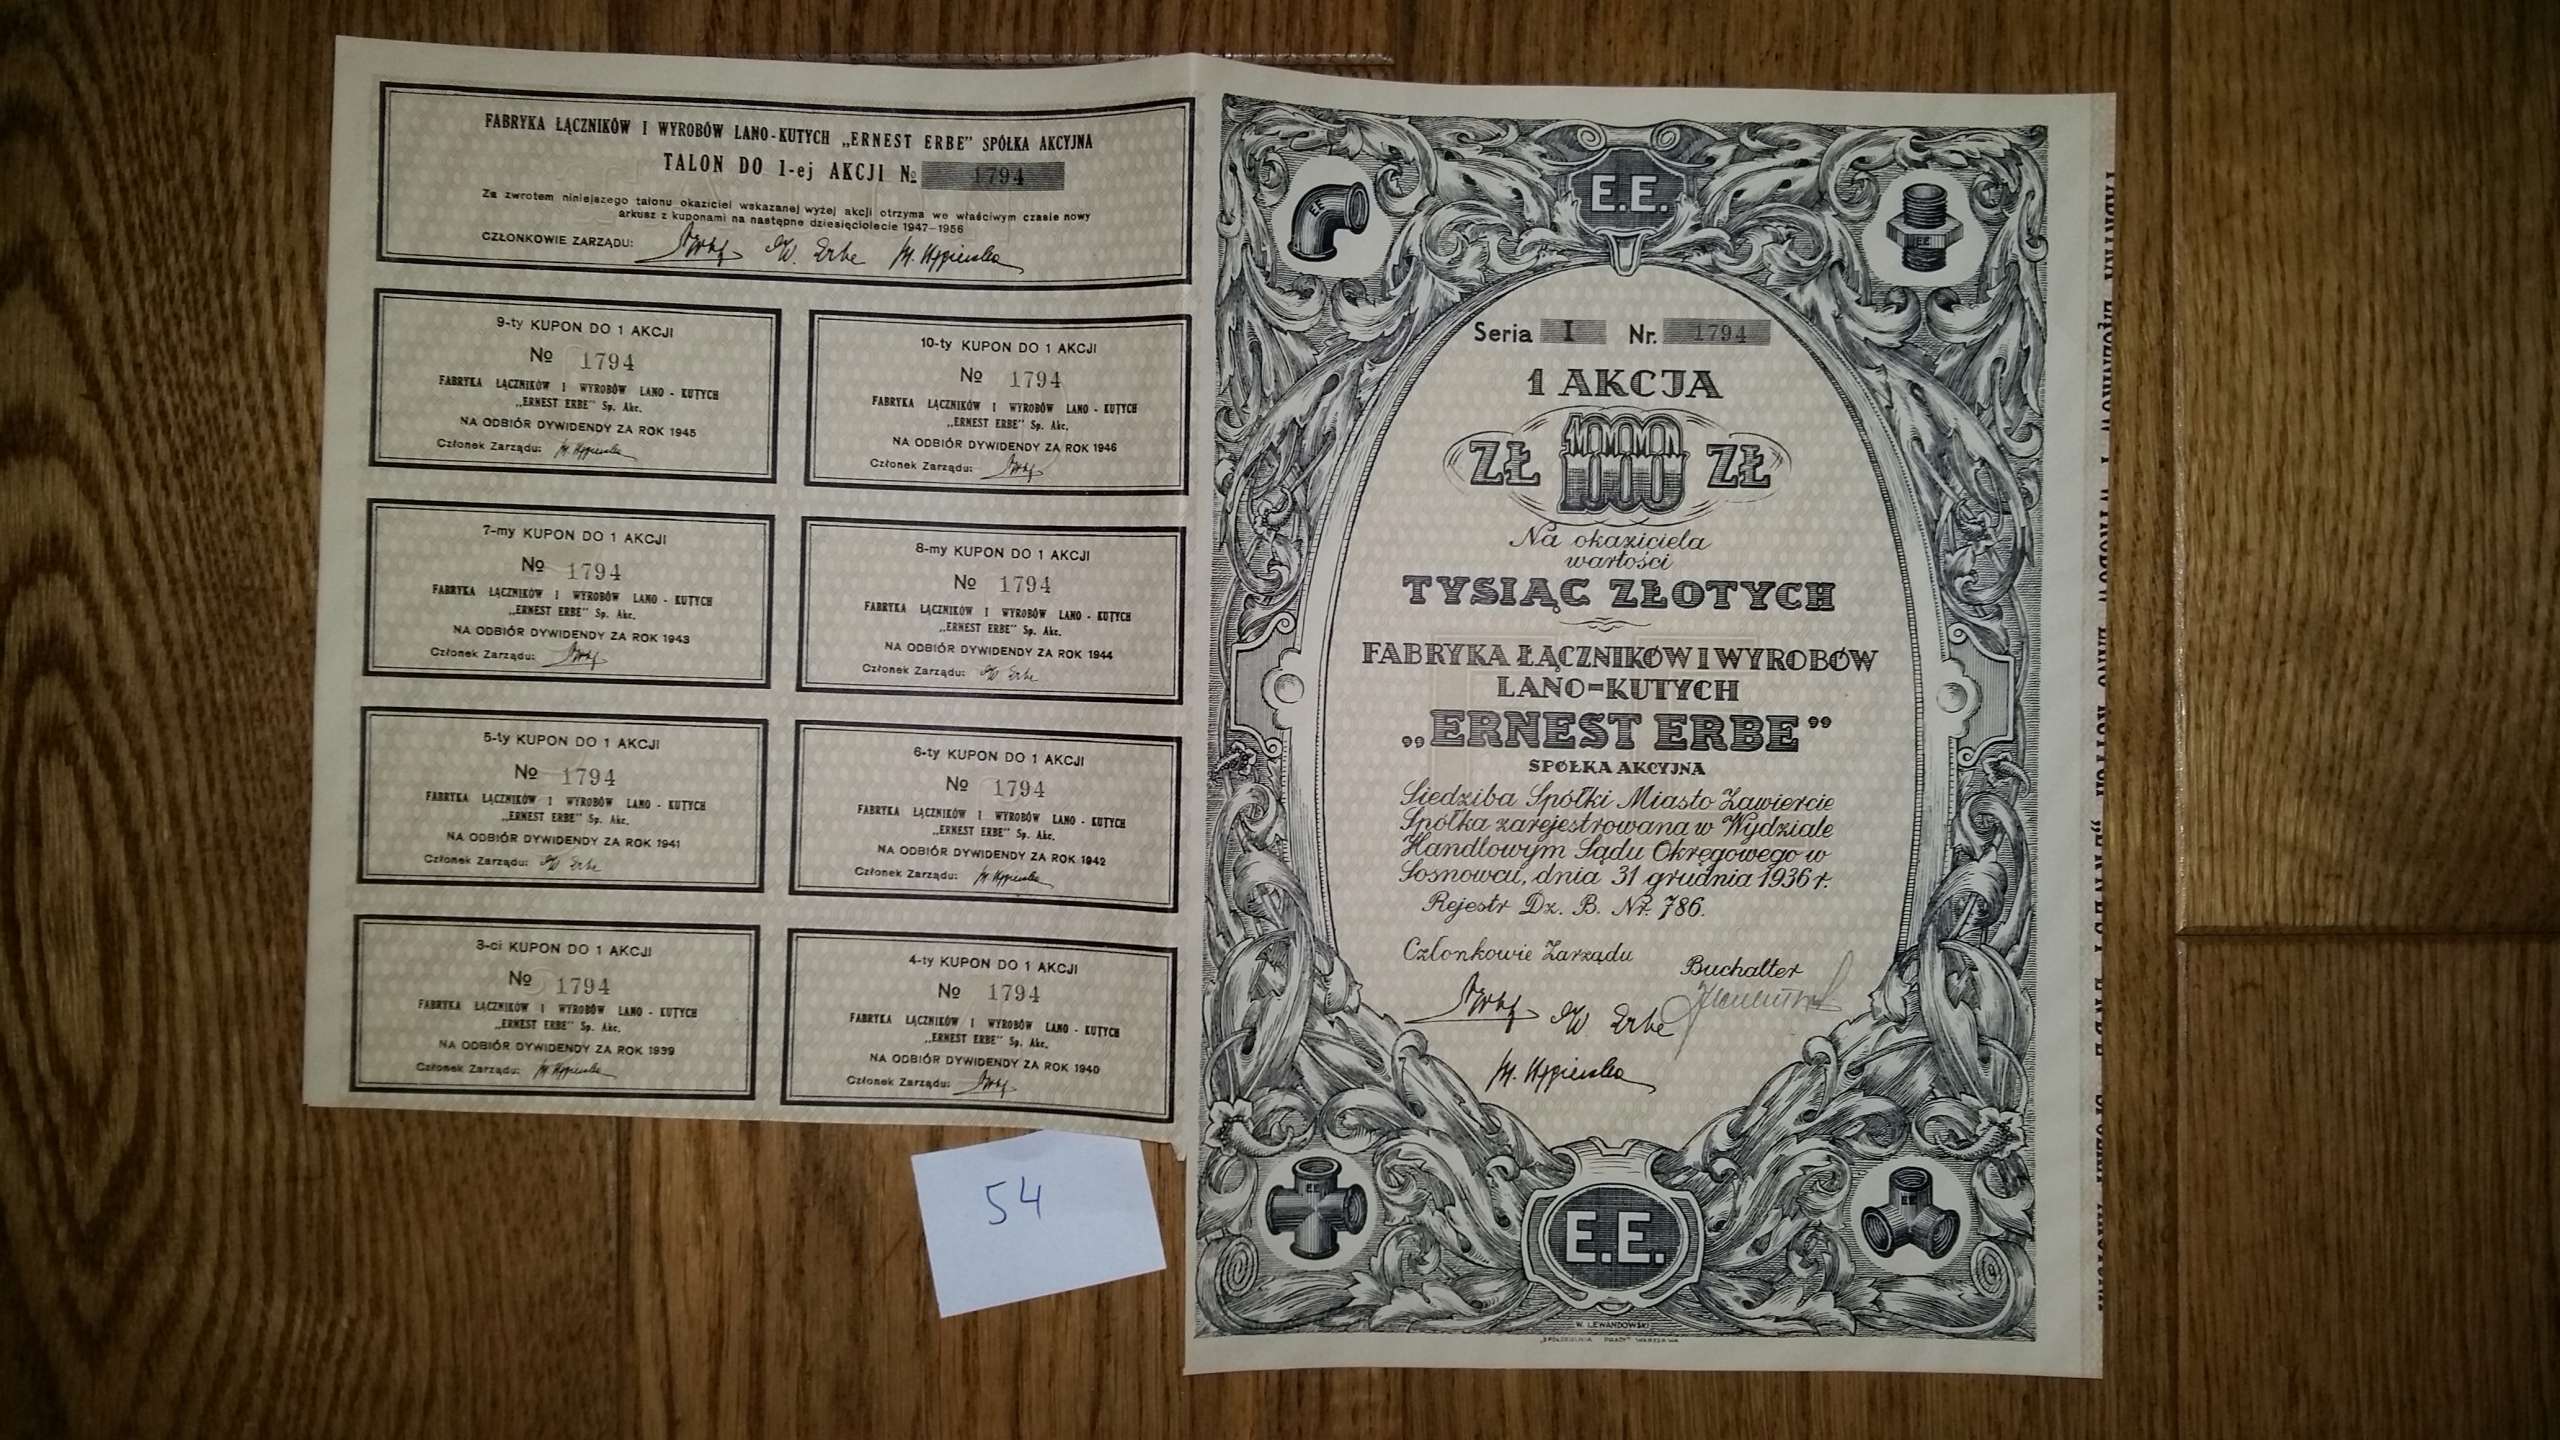 FABRYKA ŁĄCZNIKÓW I WYROBÓW LANO-KUTYCH „ERNEST ERBE” SPÓŁKA AKCYJNA
TALON DO 1-ej AKCJI № 1794
Za zwrotem niniejszego talonu okaziciel wskazanej wyżej akcji otrzyma we właściwym czasie nowy
arkusz z kuponami na następne dziesięciolecie 1947–1956
CZŁONKOWIE ZARZĄDU: W. Erbe
9-ty KUPON DO 1 AKCJI
№ 1794
FABRYKA ŁĄCZNIKÓW I WYROBÓW LANO - KUTYCH
„ERNEST ERBE” Sp. Akc.
NA ODBIÓR DYWIDENDY ZA ROK 1945
Członek Zarządu:
10-ty KUPON DO 1 AKCJI
№ 1794
FABRYKA ŁĄCZNIKÓW I WYROBÓW LANO - KUTYCH
„ERNEST ERBE” Sp. Akc.
NA ODBIÓR DYWIDENDY ZA ROK 1946
Członek Zarządu:
7-my KUPON DO 1 AKCJI
№ 1794
FABRYKA ŁĄCZNIKÓW I WYROBÓW LANO - KUTYCH
„ERNEST ERBE” Sp. Akc.
NA ODBIÓR DYWIDENDY ZA ROK 1943
Członek Zarządu:
8-my KUPON DO 1 AKCJI
№ 1794
FABRYKA ŁĄCZNIKÓW I WYROBÓW LANO - KUTYCH
„ERNEST ERBE” Sp. Akc.
NA ODBIÓR DYWIDENDY ZA ROK 1944
Członek Zarządu: W Erbe
5-ty KUPON DO 1 AKCJI
№ 1794
FABRYKA ŁĄCZNIKÓW I WYROBÓW LANO - KUTYCH
„ERNEST ERBE” Sp. Akc.
NA ODBIÓR DYWIDENDY ZA ROK 1941
Członek Zarządu: W Erbe
6-ty KUPON DO 1 AKCJI
№ 1794
FABRYKA ŁĄCZNIKÓW I WYROBÓW LANO - KUTYCH
„ERNEST ERBE” Sp. Akc.
NA ODBIÓR DYWIDENDY ZA ROK 1942
Członek Zarządu:
3-ci KUPON DO 1 AKCJI
№ 1794
FABRYKA ŁĄCZNIKÓW I WYROBÓW LANO - KUTYCH
„ERNEST ERBE” Sp. Akc.
NA ODBIÓR DYWIDENDY ZA ROK 1939
Członek Zarządu:
4-ty KUPON DO 1 AKCJI
№ 1794
FABRYKA ŁĄCZNIKÓW I WYROBÓW LANO - KUTYCH
„ERNEST ERBE” Sp. Akc.
NA ODBIÓR DYWIDENDY ZA ROK 1940
Członek Zarządu:
54
E.E.
EE
EE
Seria I Nr. 1794
1 AKCJA
ZŁ 1000 ZŁ
Na okaziciela
wartości
TYSIĄC ZŁOTYCH
FABRYKA ŁĄCZNIKÓW I WYROBÓW
LANO=KUTYCH
„ERNEST ERBE”
SPÓŁKA AKCYJNA
Siedziba Spółki Miasto Zawiercie
Spółka zarejestrowana w Wydziale
Handlowym Sądu Okręgowego w
Sosnowcu, dnia 31 grudnia 1936 r.
Rejestr Dz. B. Nr. 786.
Członkowie Zarządu
Buchalter
W Erbe
EE
EE
E.E.
W. LEWANDOWSKI
„SPÓŁDZIELNIA PRACY” WARSZAWA
FABRYKA ŁĄCZNIKÓW I WYROBÓW LANO KUTYCH „ERNEST ERBE” SPÓŁKA AKCYJNA